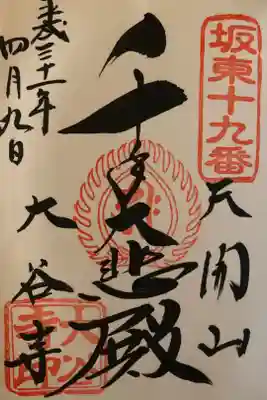 坂東十九番
天開山
千手大悲殿
大谷寺
平成三十一年
四月九日